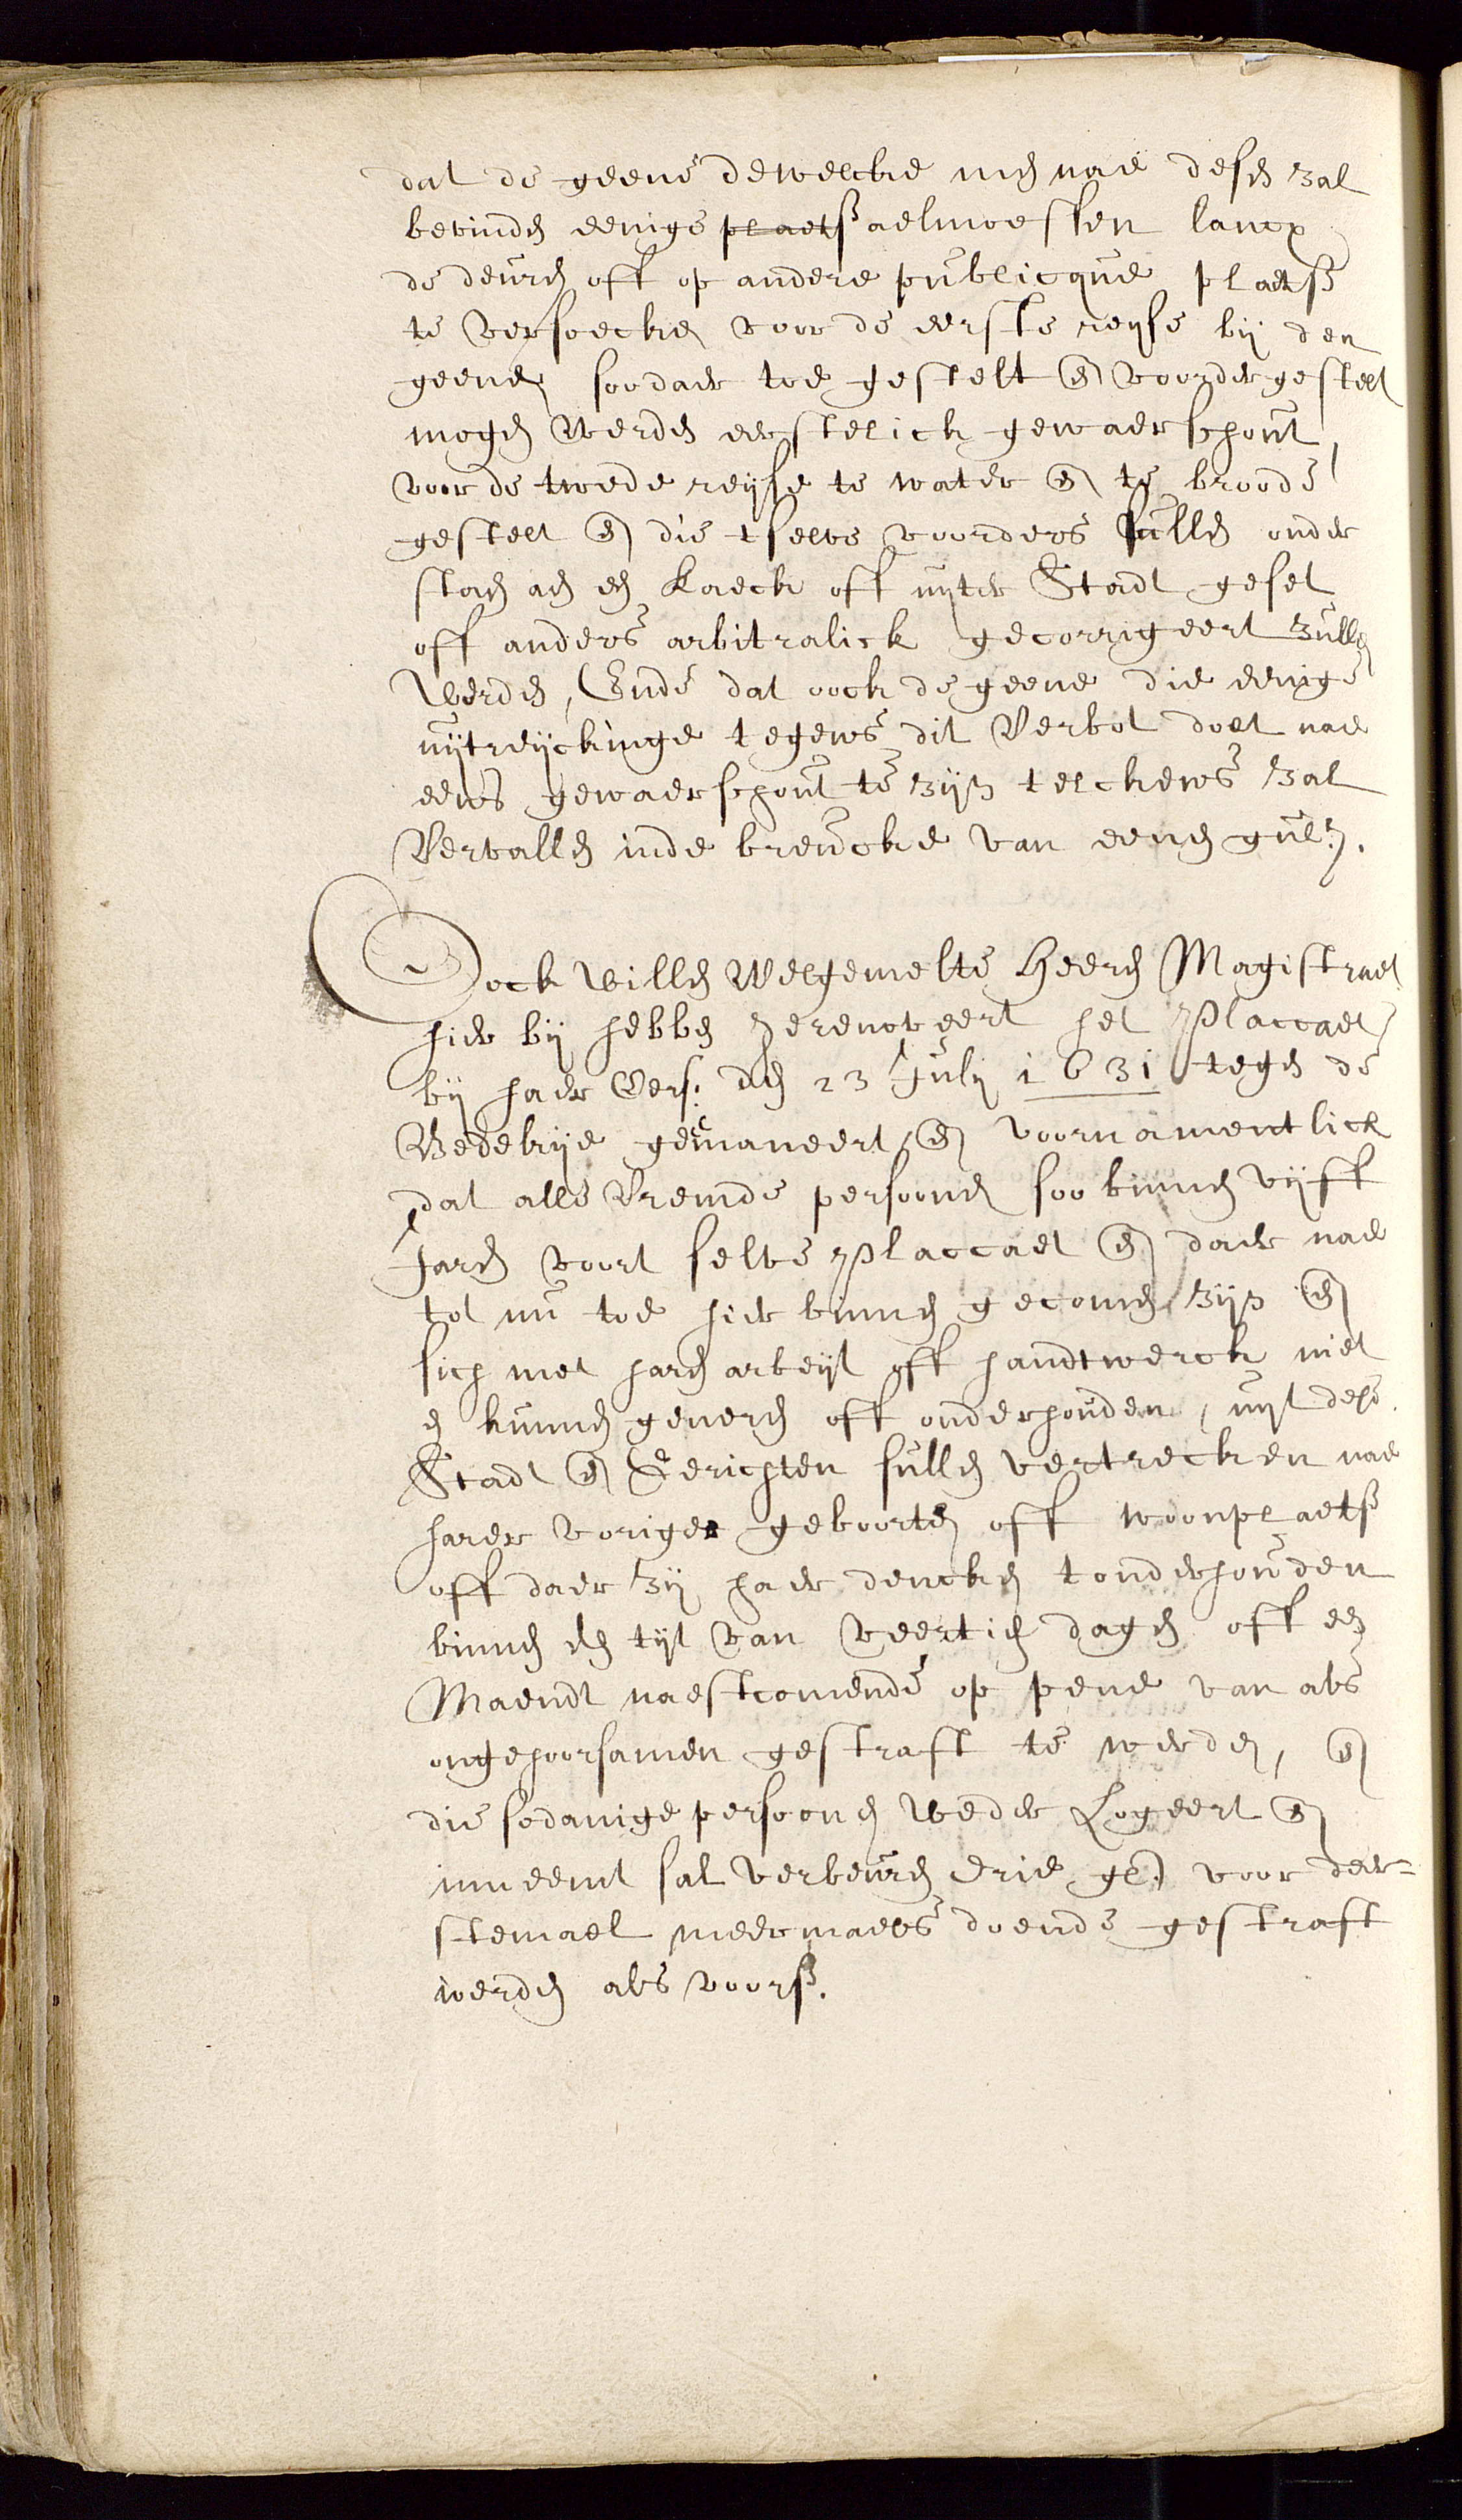 dat de geene dewelcke men nae desen zal
bevinden eenige plaetsz aelmoessen lancx
de deuren oft op andere publicque plaetsz
te versoecken voor de eerste reyse bij den
geenen soo daer toe gestelt en voorder gestelt
mogen werden eerstelick gewaerschout
voor de twede reijse te water en te broode
gestelt en die tselve voorders sullen onder
staen aen den Kaeck oft uyter Stadt geset
off anders arbitralick gecorrigeert zullen
werden, Ende dat oock de geene die eenige
uijtreijckinge tegens dit verbot doet nae
eens gewaerschout te zijn telckens zal
vervallen inde breucke van eenen gulden.
Oock willen welgemelte Heeren Magistraet
hier bij hebben gerenoveert het Placcaet
bij haer Eers. den 23 July 1631 tegen de
Bedelrije geemaneert, en voornamentlick
dat alle vremde persoonen soo binnen vijff
Jaren voort selve Placcaet en daer nae
tot nu toe hier binnen gecomen zijn en
sich met haren arbeijt oft handtwerck niet
en kunnen generen oft onderhouden, uijt dese
Stadt en Gerichten sullen vertrecken nae
harer voriger geboorte oft woonplaetsz
off daer zij haer dencken tonderhouden
binnen den tijt van veertien dagen oft een
Maendt naestcomende op pene van als
ongehoorsamen gestraft te werden, en
die sodanige persoonen weder Logeert en
inneemt sal verbeuren drie gl. voor deer-
stemael meermaels doende gestraft
werden als voorsz.